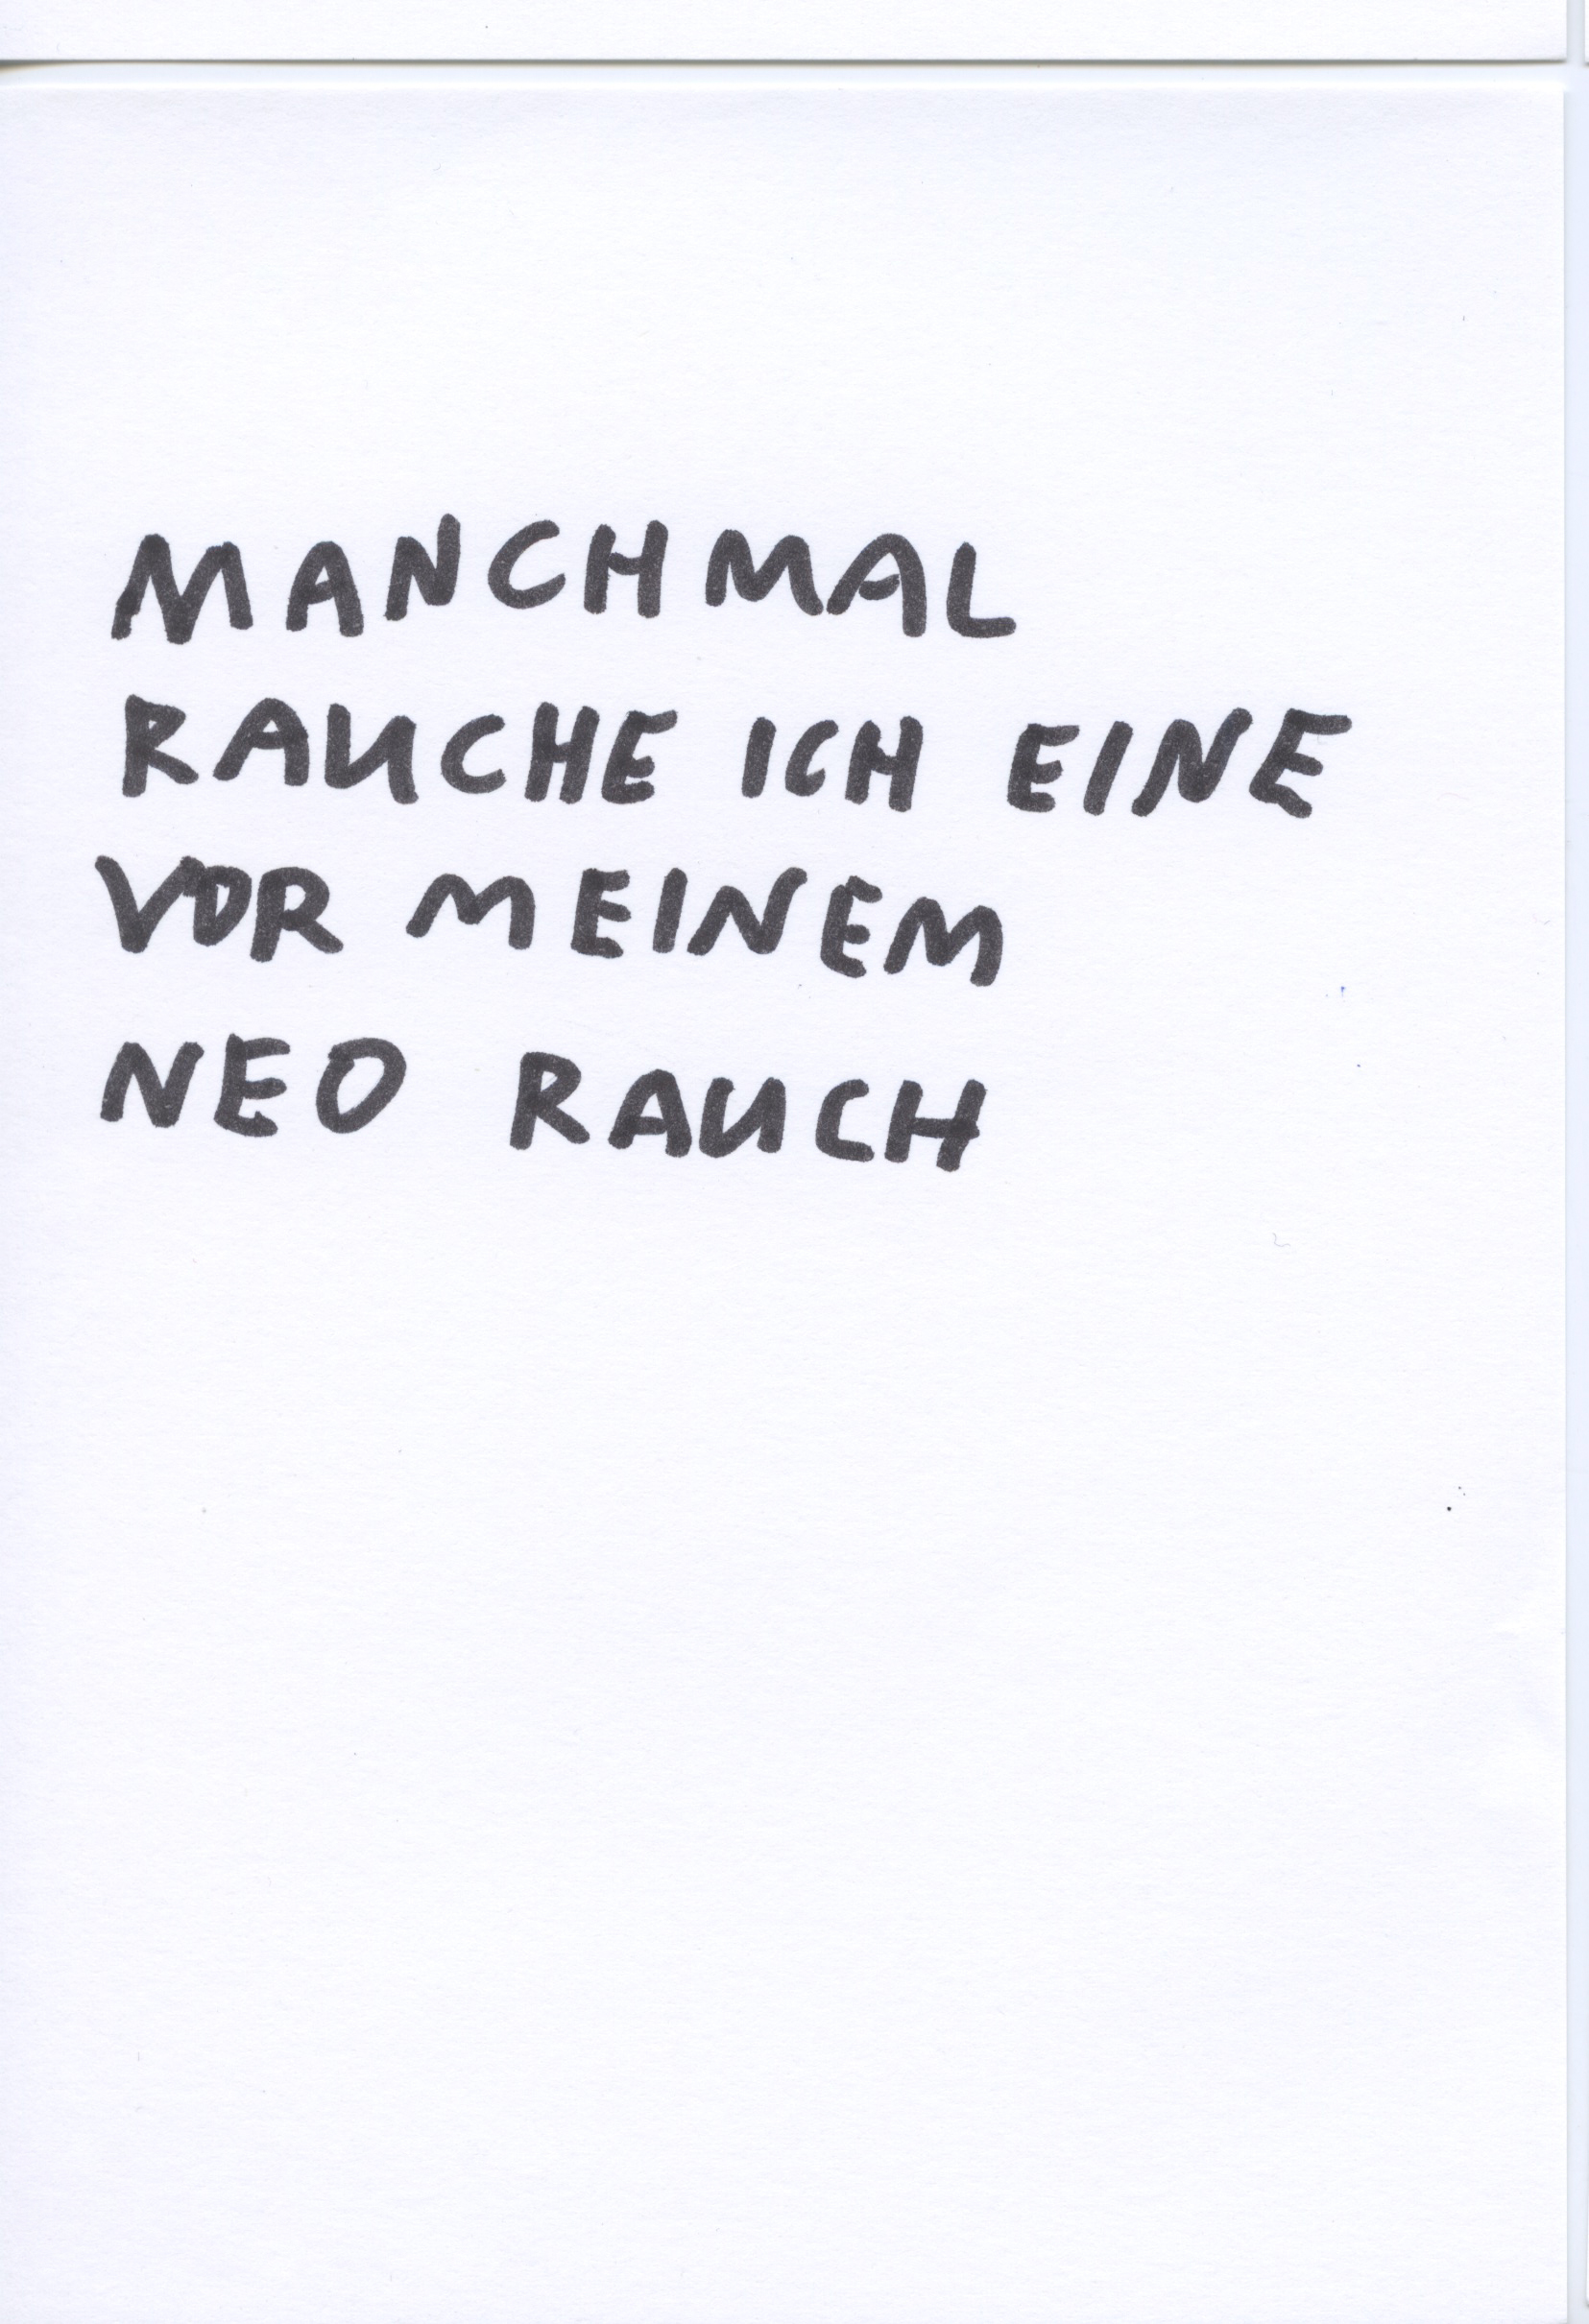 MANCHMAL
RAUCHE ICH EINE
VOR MEINEM
NEO RAUCH